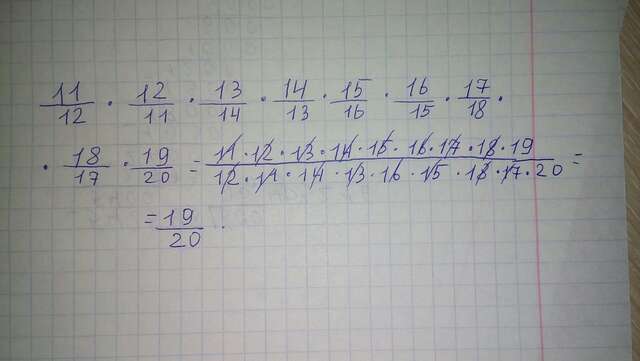 11/12 · 12/11 · 13/14 · 14/13 · 15/16 · 16/15 · 17/18 ·
· 18/17 · 19/20 = 11·12·13·14·15·16·17·18·19/12·11·14·13·16·15·18·17·20 =
= 19/20 .